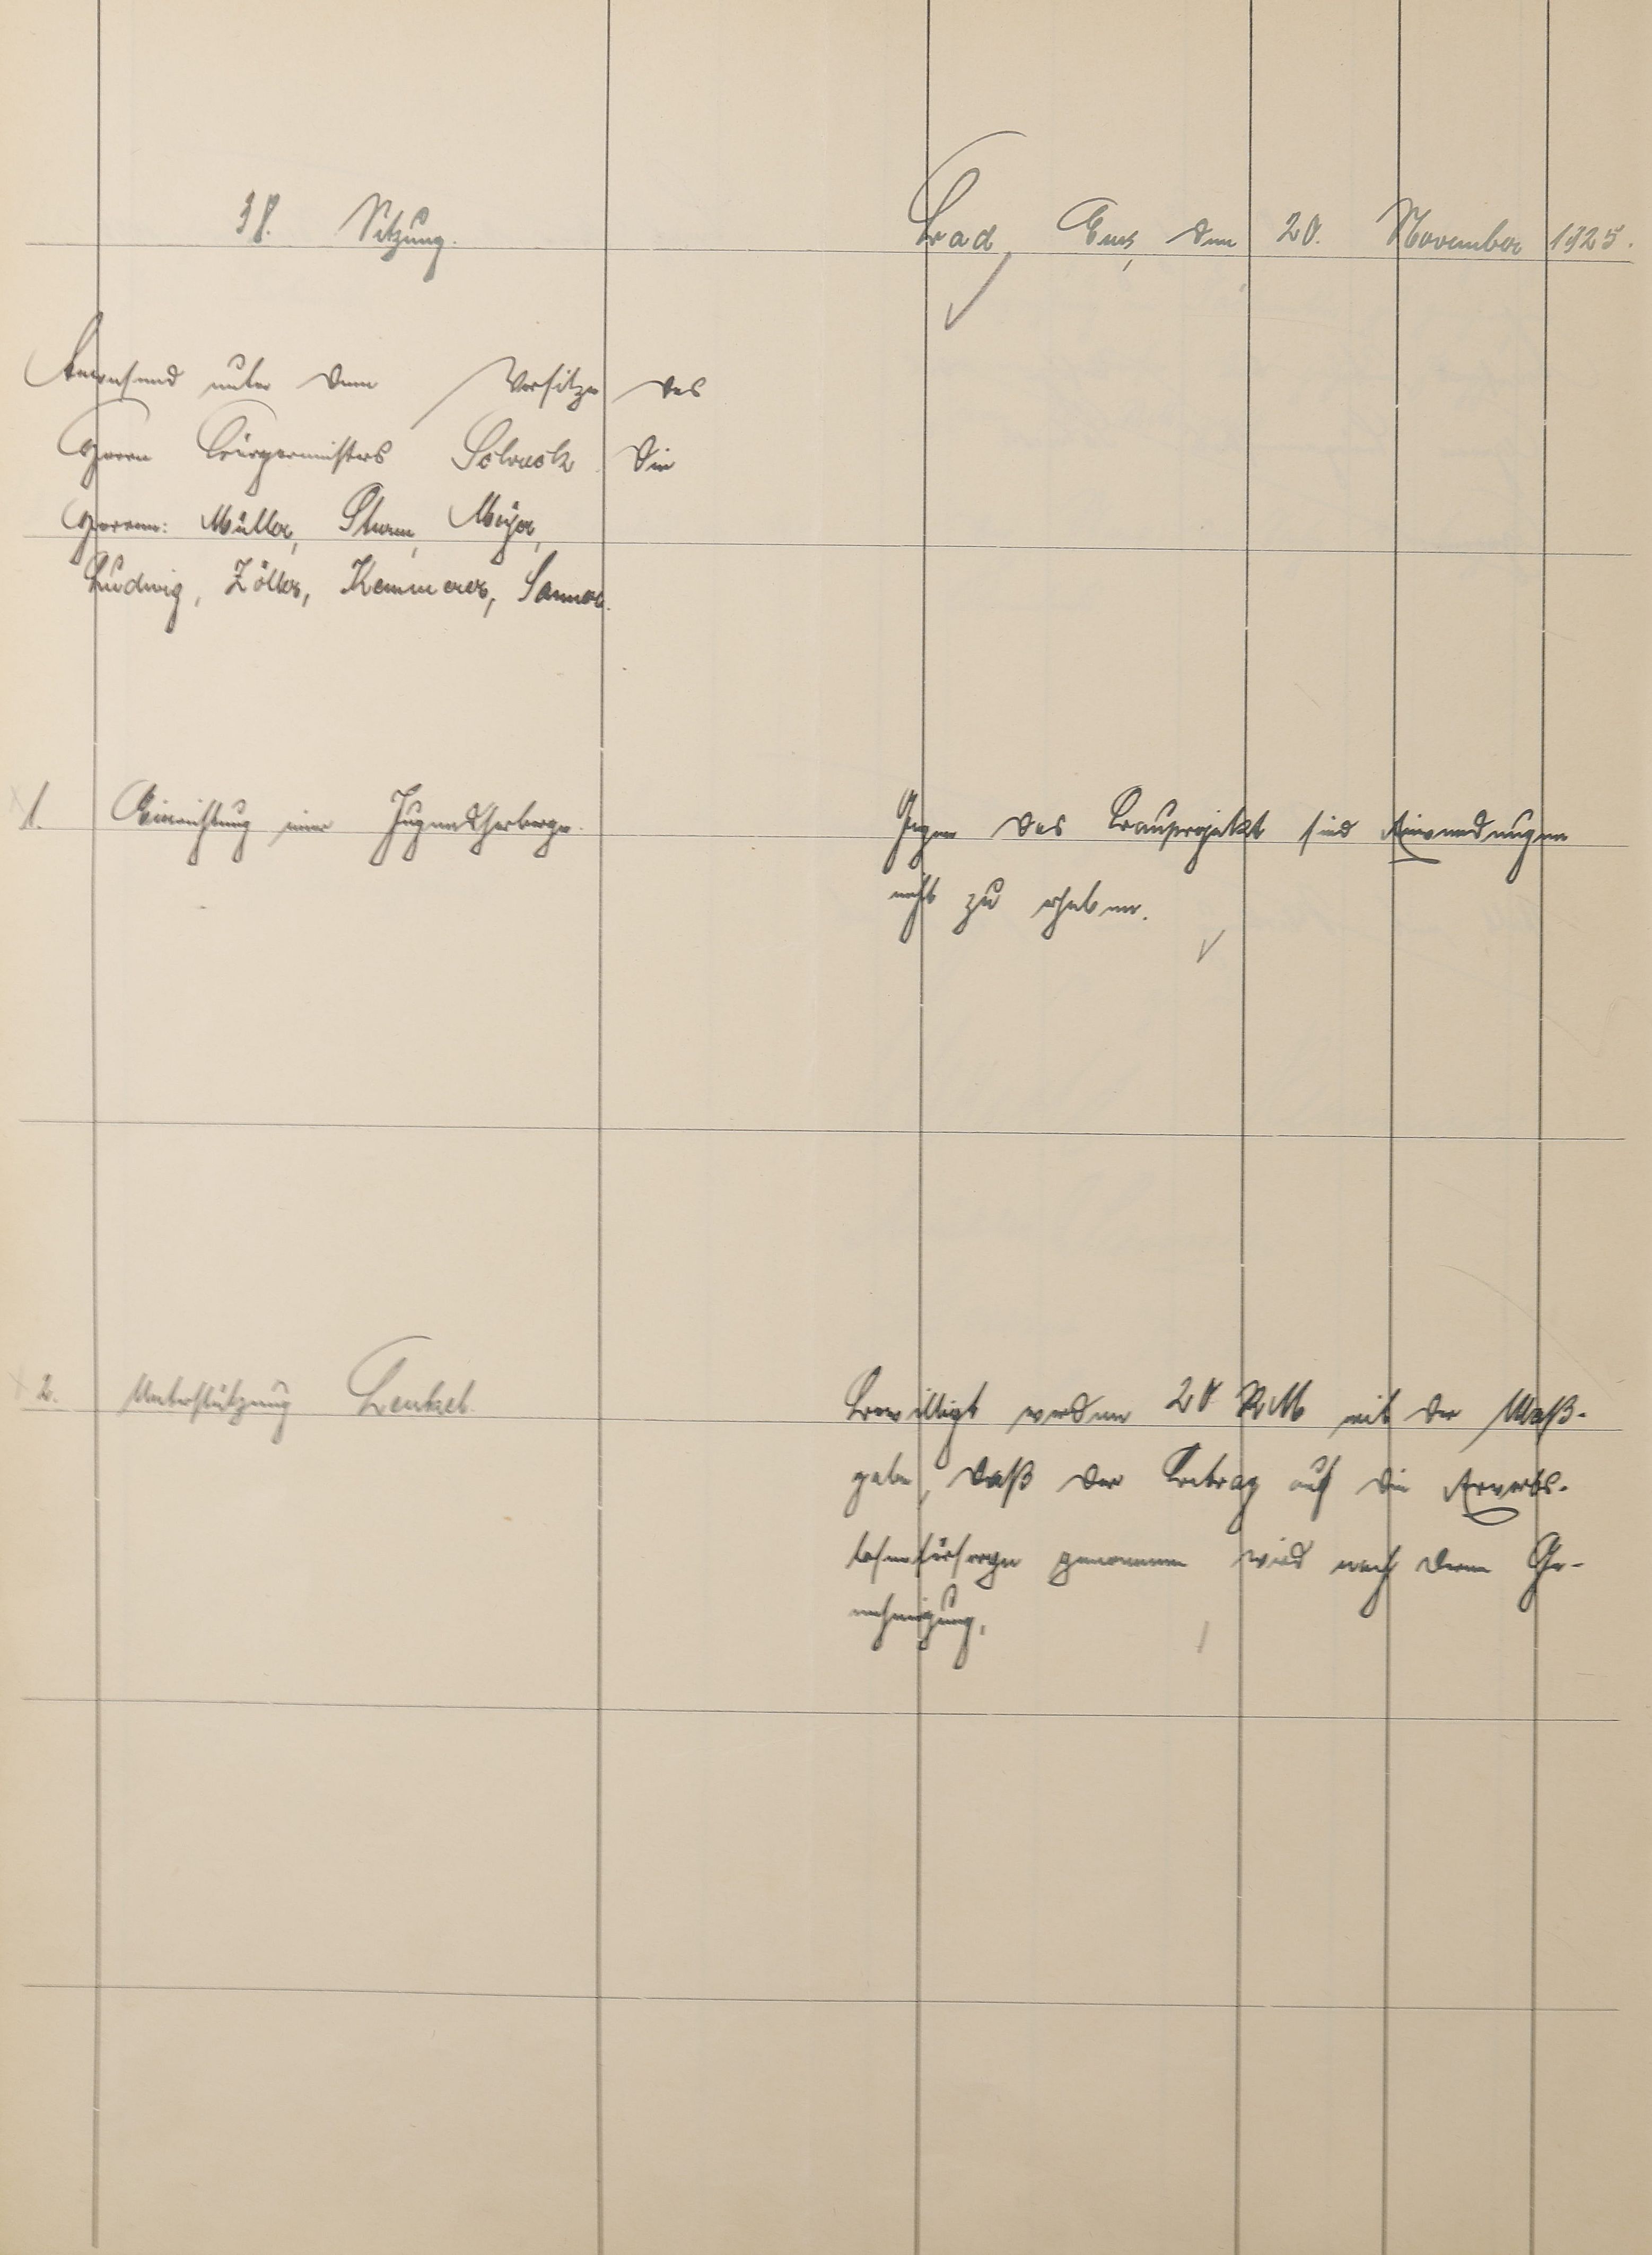 38. Sitzung.
Bad Ems, den 20. November 1925.
Anwesend unter dem Vorsitze des
Herrn Bürgermeisters Schruck die
Herren: Müller, Sturm, Meyer,
Ludwig, Zöller, Kemmerer, Sanner.
1. Einrichtung einer Jugendherberge.
Gegen das Bauprojekt sind Einwendungen
nicht zu erheben.
2. Unterstützung Henkel.
Bewilligt werden 20 RM mit der Maß-
gabe, daß der Betrag auf die Erwerbs-
losenfürsorge genommen wird nach deren Ge-
nehmigung.